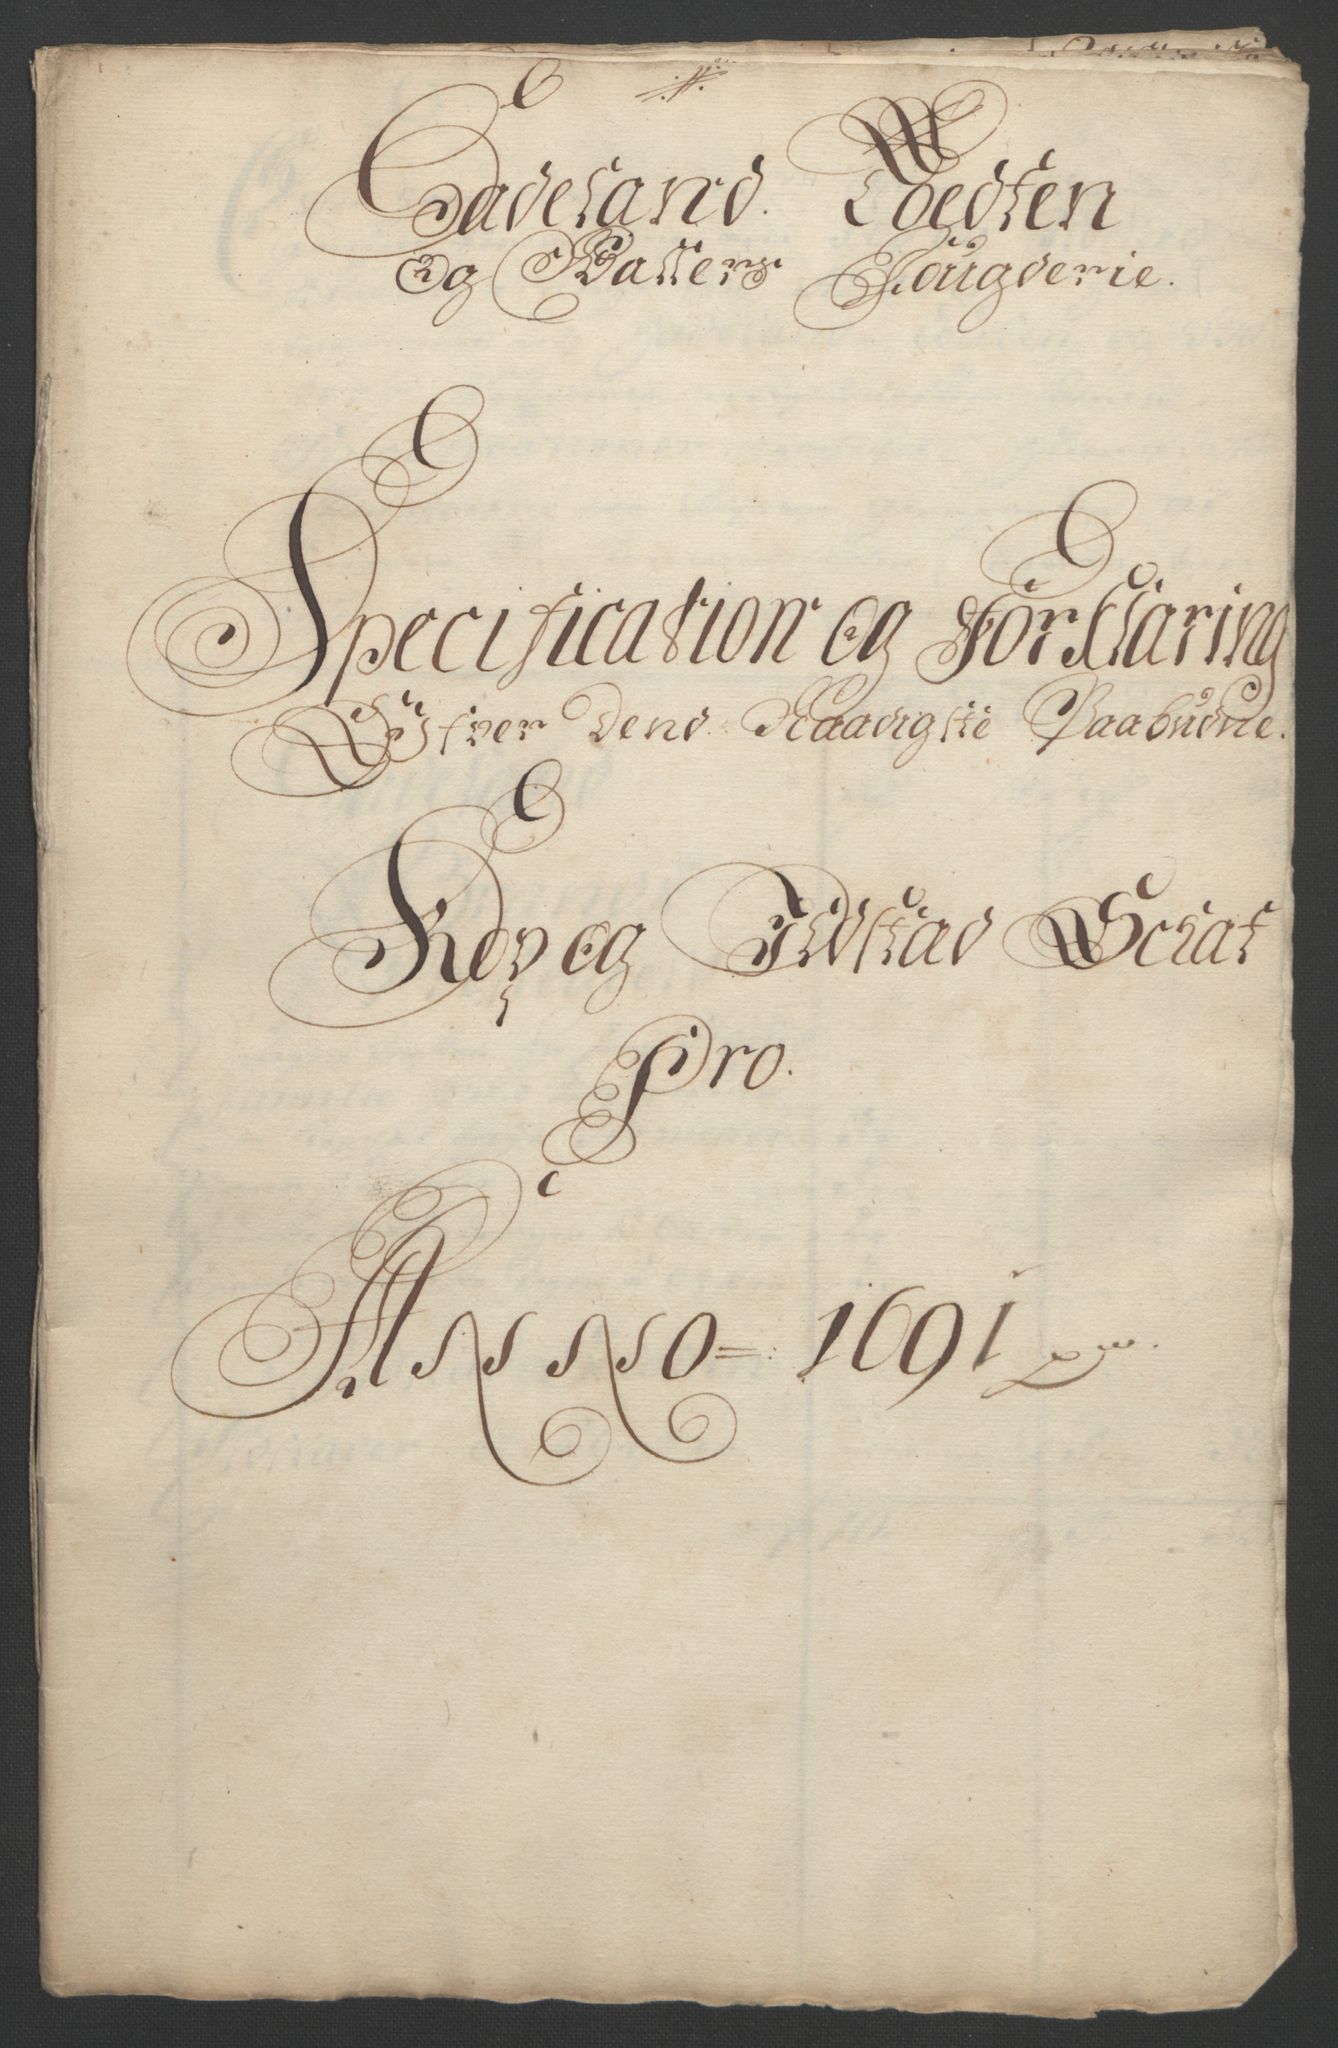 Hadeland. Toedten
og Valders Fougderie.
Specification og Forklaring
Ofver Dend Naadigste Paabudne.
Roß og Ildstad Schat
Pro.
Anno = 1691